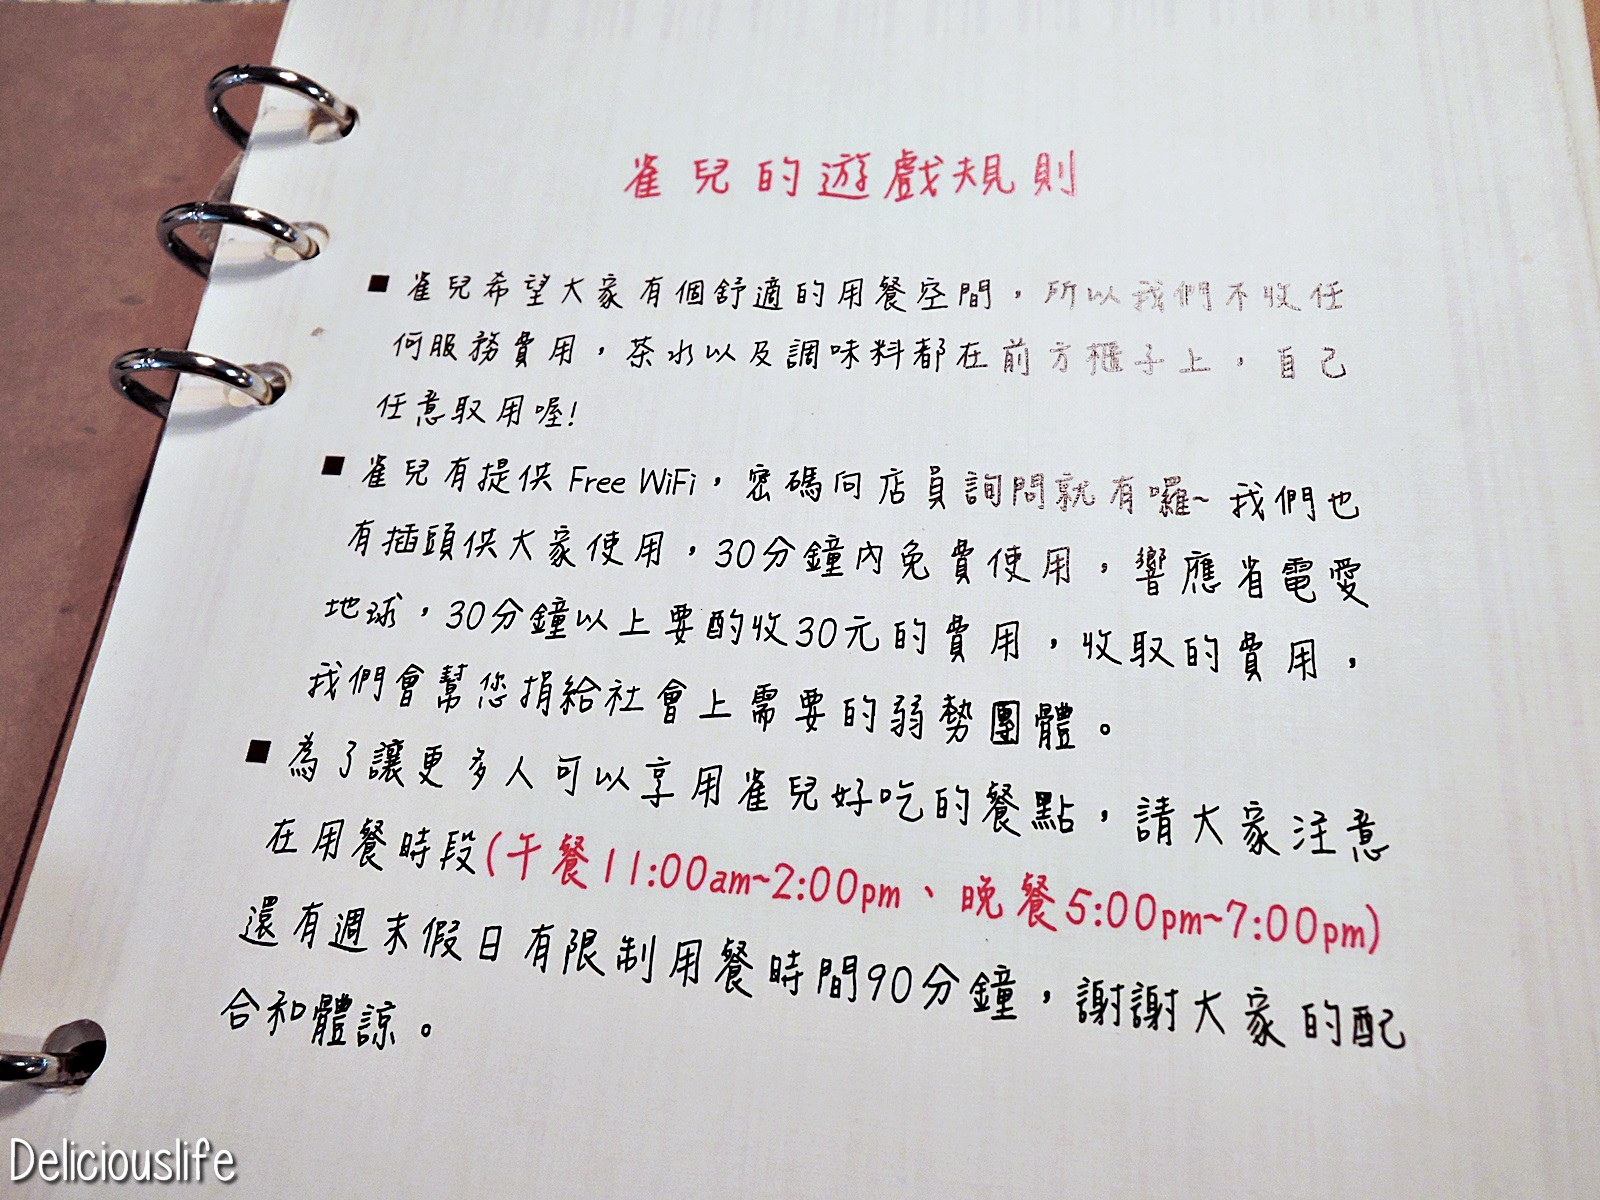 雀兒的遊戲規則
■ 雀兒希望大家有個舒適的用餐空間，所以我們不收任
何服務費用，茶水以及調味料都在前方櫃子上，自己
任意取用喔!
■ 雀兒有提供 Free WiFi，密碼向店員詢問就有囉~ 我們也
有插頭供大家使用，30分鐘內免費使用，響應省電愛
地球，30分鐘以上要酌收30元的費用，收取的費用，
我們會幫您捐給社會上需要的弱勢團體。
■ 為了讓更多人可以享用雀兒好吃的餐點，請大家注意
在用餐時段(午餐11:00am~2:00pm、晚餐5:00pm~7:00pm)
還有週末假日有限制用餐時間90分鐘，謝謝大家的配
合和體諒。
Deliciouslife